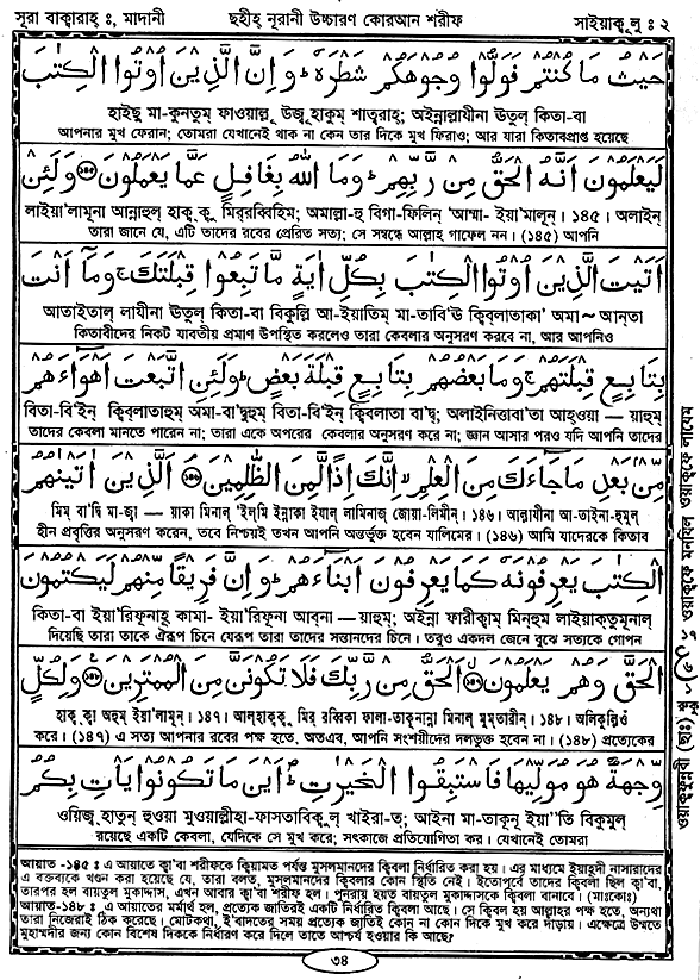 সূরা বাক্বারাহ্ : মাদানী
ছহীহ্ নূরানী উচ্চারণ কোরআন শরীফ
সাইয়াকূলু : ২
حَيْثُ مَا كُنْتُمْ فَوَلُّوا وُجُوهَكُمْ شَطْرَهُ ۗ وَإِنَّ الَّذِينَ أُوتُوا الْكِتٰبَ
হাইছু মা-কুনতুম্ ফাওয়াল্লূ উজূ হাকুম্ শাত্বরাহ্; অইন্নাল্লাযীনা ঊতুল্ কিতা-বা
আপনার মুখ ফেরান; তোমরা যেখানেই থাক না কেন তার দিকে মুখ ফিরাও; আর যারা কিতাবপ্রাপ্ত হয়েছে
لَيَعْلَمُونَ أَنَّهُ الْحَقُّ مِنْ رَّبِّهِمْ ۗ وَمَا اللّٰهُ بِغَافِلٍ عَمَّا يَعْمَلُونَ ﴿১৪৫﴾ وَلَئِنْ
লাইয়া'লামূনা আন্নাহুল্ হাক্ ক্বু মির্‌রব্বিহিম; অমাল্লা-হু বিগা-ফিলিন্ 'আম্মা- ইয়া'মালূন্। ১৪৫। অলাইন্
তারা জানে যে, এটি তাদের রবের প্রেরিত সত্য; সে সম্বন্ধে আল্লাহ গাফেল নন। (১৪৫) আপনি
أَتَيْتَ الَّذِينَ أُوتُوا الْكِتٰبَ بِكُلِّ اٰيَةٍ مَّا تَبِعُوا قِبْلَتَكَ ۚ وَمَا أَنْتَ
আতাইতাল্ লাযীনা ঊতুল্ কিতা-বা বিকুল্লি আ-ইয়াতিম্ মা-তাবি'ঊ ক্বিব্‌লাতাকা' অমা ~ আন্‌তা
কিতাবীদের নিকট যাবতীয় প্রমাণ উপস্থিত করলেও তারা কেবলার অনুসরণ করবে না, আর আপনিও
بِتَابِعٍ قِبْلَتَهُمْ ۚ وَمَا بَعْضُهُمْ بِتَابِعٍ قِبْلَةَ بَعْضٍ ۗ وَلَئِنِ اتَّبَعْتَ أَهْوَاءَهُمْ
বিতা-বি'ইন্ ক্বিব্‌লাতাহুম্ অমা-বা'দ্বুহুম্ বিতা-বি'ইন্ ক্বিব্‌লাতা বা'দ্ব্; অলাইনিত্তাবা'তা আহ্ওয়া — য়াহুম্
তাদের কেবলা মানতে পারেন না; তারা একে অপরের কেবলার অনুসরণ করে না; জ্ঞান আসার পরও যদি আপনি তাদের
مِّنْ بَعْدِ مَا جَاءَكَ مِنَ الْعِلْمِ ۙ إِنَّكَ إِذًا لَّمِنَ الظّٰلِمِينَ ﴿১৪৬﴾ الَّذِينَ اٰتَيْنٰهُمُ
মিম্ বা'দি মা-জ্বা — য়াকা মিনাল্ 'ইল্‌মি ইন্নাকা ইযাল্ লামিনাজ্ জোয়া-লিমীন্। ১৪৬। আল্লাযীনা আ-তাইনা-হুমুল্
হীন প্রবৃত্তির অনুসরণ করেন, তবে নিশ্চয়ই তখন আপনি অন্তর্ভুক্ত হবেন যালিমের। (১৪৬) আমি যাদেরকে কিতাব
الْكِتٰبَ يَعْرِفُونَهُ كَمَا يَعْرِفُونَ أَبْنَاءَهُمْ ۗ وَإِنَّ فَرِيقًا مِّنْهُمْ لَيَكْتُمُونَ
কিতা-বা ইয়া'রিফূনাহূ কামা- ইয়া'রিফূনা আব্‌না — য়াহুম্; অইন্না ফারীক্বাম্ মিন্‌হুম লাইয়াক্‌তুমূনাল্
দিয়েছি তারা তাকে ঐরূপ চিনে যেরূপ তারা তাদের সন্তানদের চিনে। তবুও একদল জেনে বুঝে সত্যকে গোপন
الْحَقَّ وَهُمْ يَعْلَمُونَ ﴿১৪৭﴾ الْحَقُّ مِنْ رَّبِّكَ فَلَا تَكُونَنَّ مِنَ الْمُمْتَرِينَ ﴿১৪৮﴾ وَلِكُلٍّ
হাক্ ক্বা অহুম্ ইয়া'লামূন্। ১৪৭। আল্‌হাক্ ক্বূ মির্ রব্বিকা ফালা-তাকূনান্না মিনাল্ মুম্‌তারীন্। ১৪৮। অলিকুল্লিওঁ
করে। (১৪৭) এ সত্য আপনার রবের পক্ষ হতে, অতএব, আপনি সংশয়ীদের দলভুক্ত হবেন না। (১৪৮) প্রত্যেকের
وِّجْهَةٌ هُوَ مُوَلِّيهَا فَاسْتَبِقُوا الْخَيْرٰتِ ۚ أَيْنَ مَا تَكُونُوا يَأْتِ بِكُمُ
ওয়িজ্‌ হাতুন্ হুওয়া মুওয়াল্লীহা-ফাস্‌তাবিকূল্ খাইরা-ত্; আইনা মা-তাকূনূ ইয়া''তি বিকুমুল্
রয়েছে একটি কেবলা, যেদিকে সে মুখ করে; সৎকাজে প্রতিযোগিতা কর। যেখানেই তোমরা
ওয়াক্বফুন্নবী (ছাঃ)
ওয়াক্বফে মনযিল ওয়াক্বফে লাযেম
আয়াত -১৪৫ : এ আয়াতে ক্বা'বা শরীফকে ক্বিয়ামত পর্যন্ত মুসলমানদের ক্বিবলা নির্ধারিত করা হয়। এর মাধ্যমে ইয়াহূদী নাসারাদের
এ বক্তব্যকে খণ্ডন করা হয়েছে যে, তারা বলত, মুসলমানদের ক্বিবলার কোন স্থিতি নেই। ইতোপূর্বে তাদের ক্বিবলা ছিল ক্বা'বা,
তারপর হল বায়তুল মুকাদ্দাস, এখন আবার ক্বা'বা শরীফ হল। পুনরায় হয়ত বায়তুল মুকাদ্দাসকে ক্বিবলা বানাবে। (মাঃকোঃ)
আয়াত-১৪৮ : এ আয়াতের মর্মার্থ হল, প্রত্যেক জাতিরই একটি নির্ধারিত ক্বিবলা আছে। সে ক্বিবলা হয় আল্লাহর পক্ষ হতে, অন্যথা
তারা নিজেরাই ঠিক করেছে। মোটকথা, ই'বাদতের সময় প্রত্যেক জাতিই কোন না কোন দিকে মুখ করে দাঁড়ায়। এক্ষেত্রে উম্মতে
মুহাম্মদীর জন্য কোন বিশেষ দিককে নির্ধারণ করে দিলে তাতে আশ্চর্য হওয়ার কি আছে?
৩৪